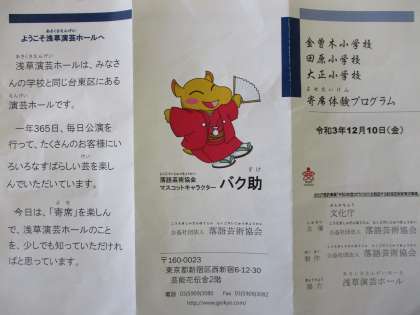 ようこそ浅草演芸ホールへ
浅草演芸ホールは、みな
さんの学校と同じ台東区にある
演芸ホールです。
一年365日、毎日公演を
行って、たくさんのお客様にい
ろいろなすばらしい芸を楽し
んでいただいています。
今日は、「寄席」を楽し
んで、浅草演芸ホールのこと
を、少しでも知っていただけれ
ばと思っています。
落語芸術協会
マスコットキャラクター バク助
〒160-0023
東京都新宿区西新宿6-12-30
芸能花伝舎2階
http://www.geikyo.com/
金曽木小学校
田原小学校
大正小学校
寄席体験プログラム
令和3年12月10日(金)
文化庁
公益社団法人 落語芸術協会
公益社団法人 落語芸術協会
浅草演芸ホール